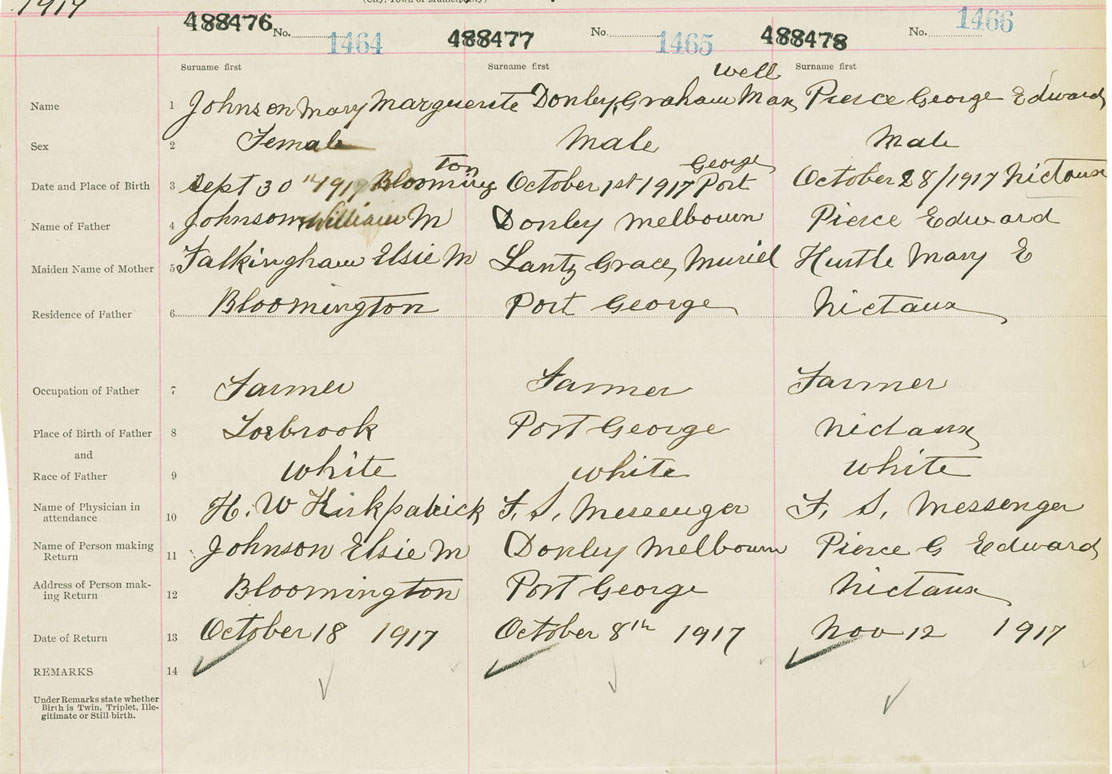 1917
(City, Town or Municipality)
488476 No. 1464 488477 No. 1465 488478 No. 1466
Surname first Surname first Surname first
well
Name 1 Johnson Mary Marguerite Donley, Graham Max Pierce George Edward
Sex 2 Female Male Male
ton George
Date and Place of Birth 3 Sept 30th 1917 Blooming October 1st 1917 Port October 28/1917 Nictaux
Name of Father 4 Johnson William M Donley Melbourn Pierce Edward
Maiden Name of Mother 5 Falkingham Elsie M Lantz Grace, Muriel Hustle Mary E
Residence of Father 6 Bloomington Port George Nictaux
Occupation of Father 7 Farmer Farmer Farmer
Place of Birth of Father 8 Torbrook Port George Nictaux
and
Race of Father 9 white white white
Name of Physician in
attendance 10 H. W Kirkpatrick F. S. Messenger F. S. Messenger
Name of Person making
Return 11 Johnson Elsie M Donley Melbourn Pierce G Edward
Address of Person mak-
ing Return 12 Bloomington Port George Nictaux
Date of Return 13 October 18 1917 October 8th 1917 Nov 12 1917
REMARKS 14
Under Remarks state whether
Birth is Twin, Triplet, Ille-
gitimate or Still birth.